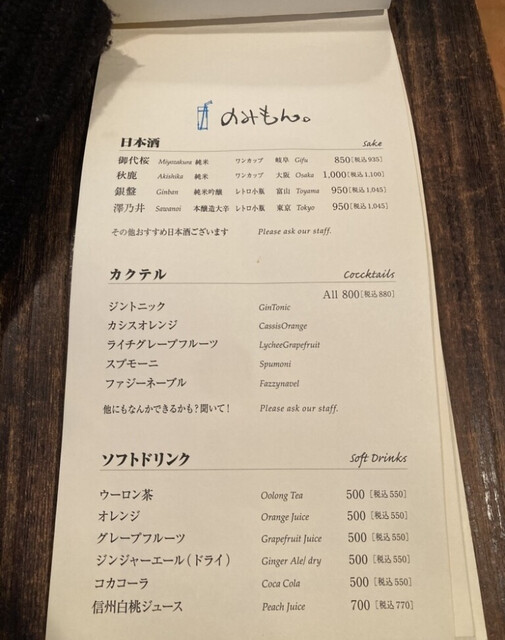 のみもん。
日本酒 sake
御代桜 Miyozakura 純米 ワンカップ 岐阜 Gifu 850[税込935]
秋鹿 Akishika 純米 ワンカップ 大阪 Osaka 1,000[税込1,100]
銀盤 Ginban 純米吟醸 レトロ小瓶 富山 Toyama 950[税込1,045]
澤乃井 Sawanoi 本醸造大辛 レトロ小瓶 東京 Tokyo 950[税込1,045]
その他おすすめ日本酒ございます Please ask our staff.
カクテル Coccktails
All 800[税込880]
ジントニック GinTonic
カシスオレンジ CassisOrange
ライチグレープフルーツ LycheeGrapefruit
スプモーニ Spumoni
ファジーネーブル Fazzynavel
他にもなんかできるかも?聞いて! Please ask our staff.
ソフトドリンク Soft Drinks
ウーロン茶 Oolong Tea 500 [税込550]
オレンジ Orange Juice 500 [税込550]
グレープフルーツ Grapefruit Juice 500 [税込550]
ジンジャーエール(ドライ) Ginger Ale/ dry 500 [税込550]
コカコーラ Coca Cola 500 [税込550]
信州白桃ジュース Peach Juice 700 [税込770]